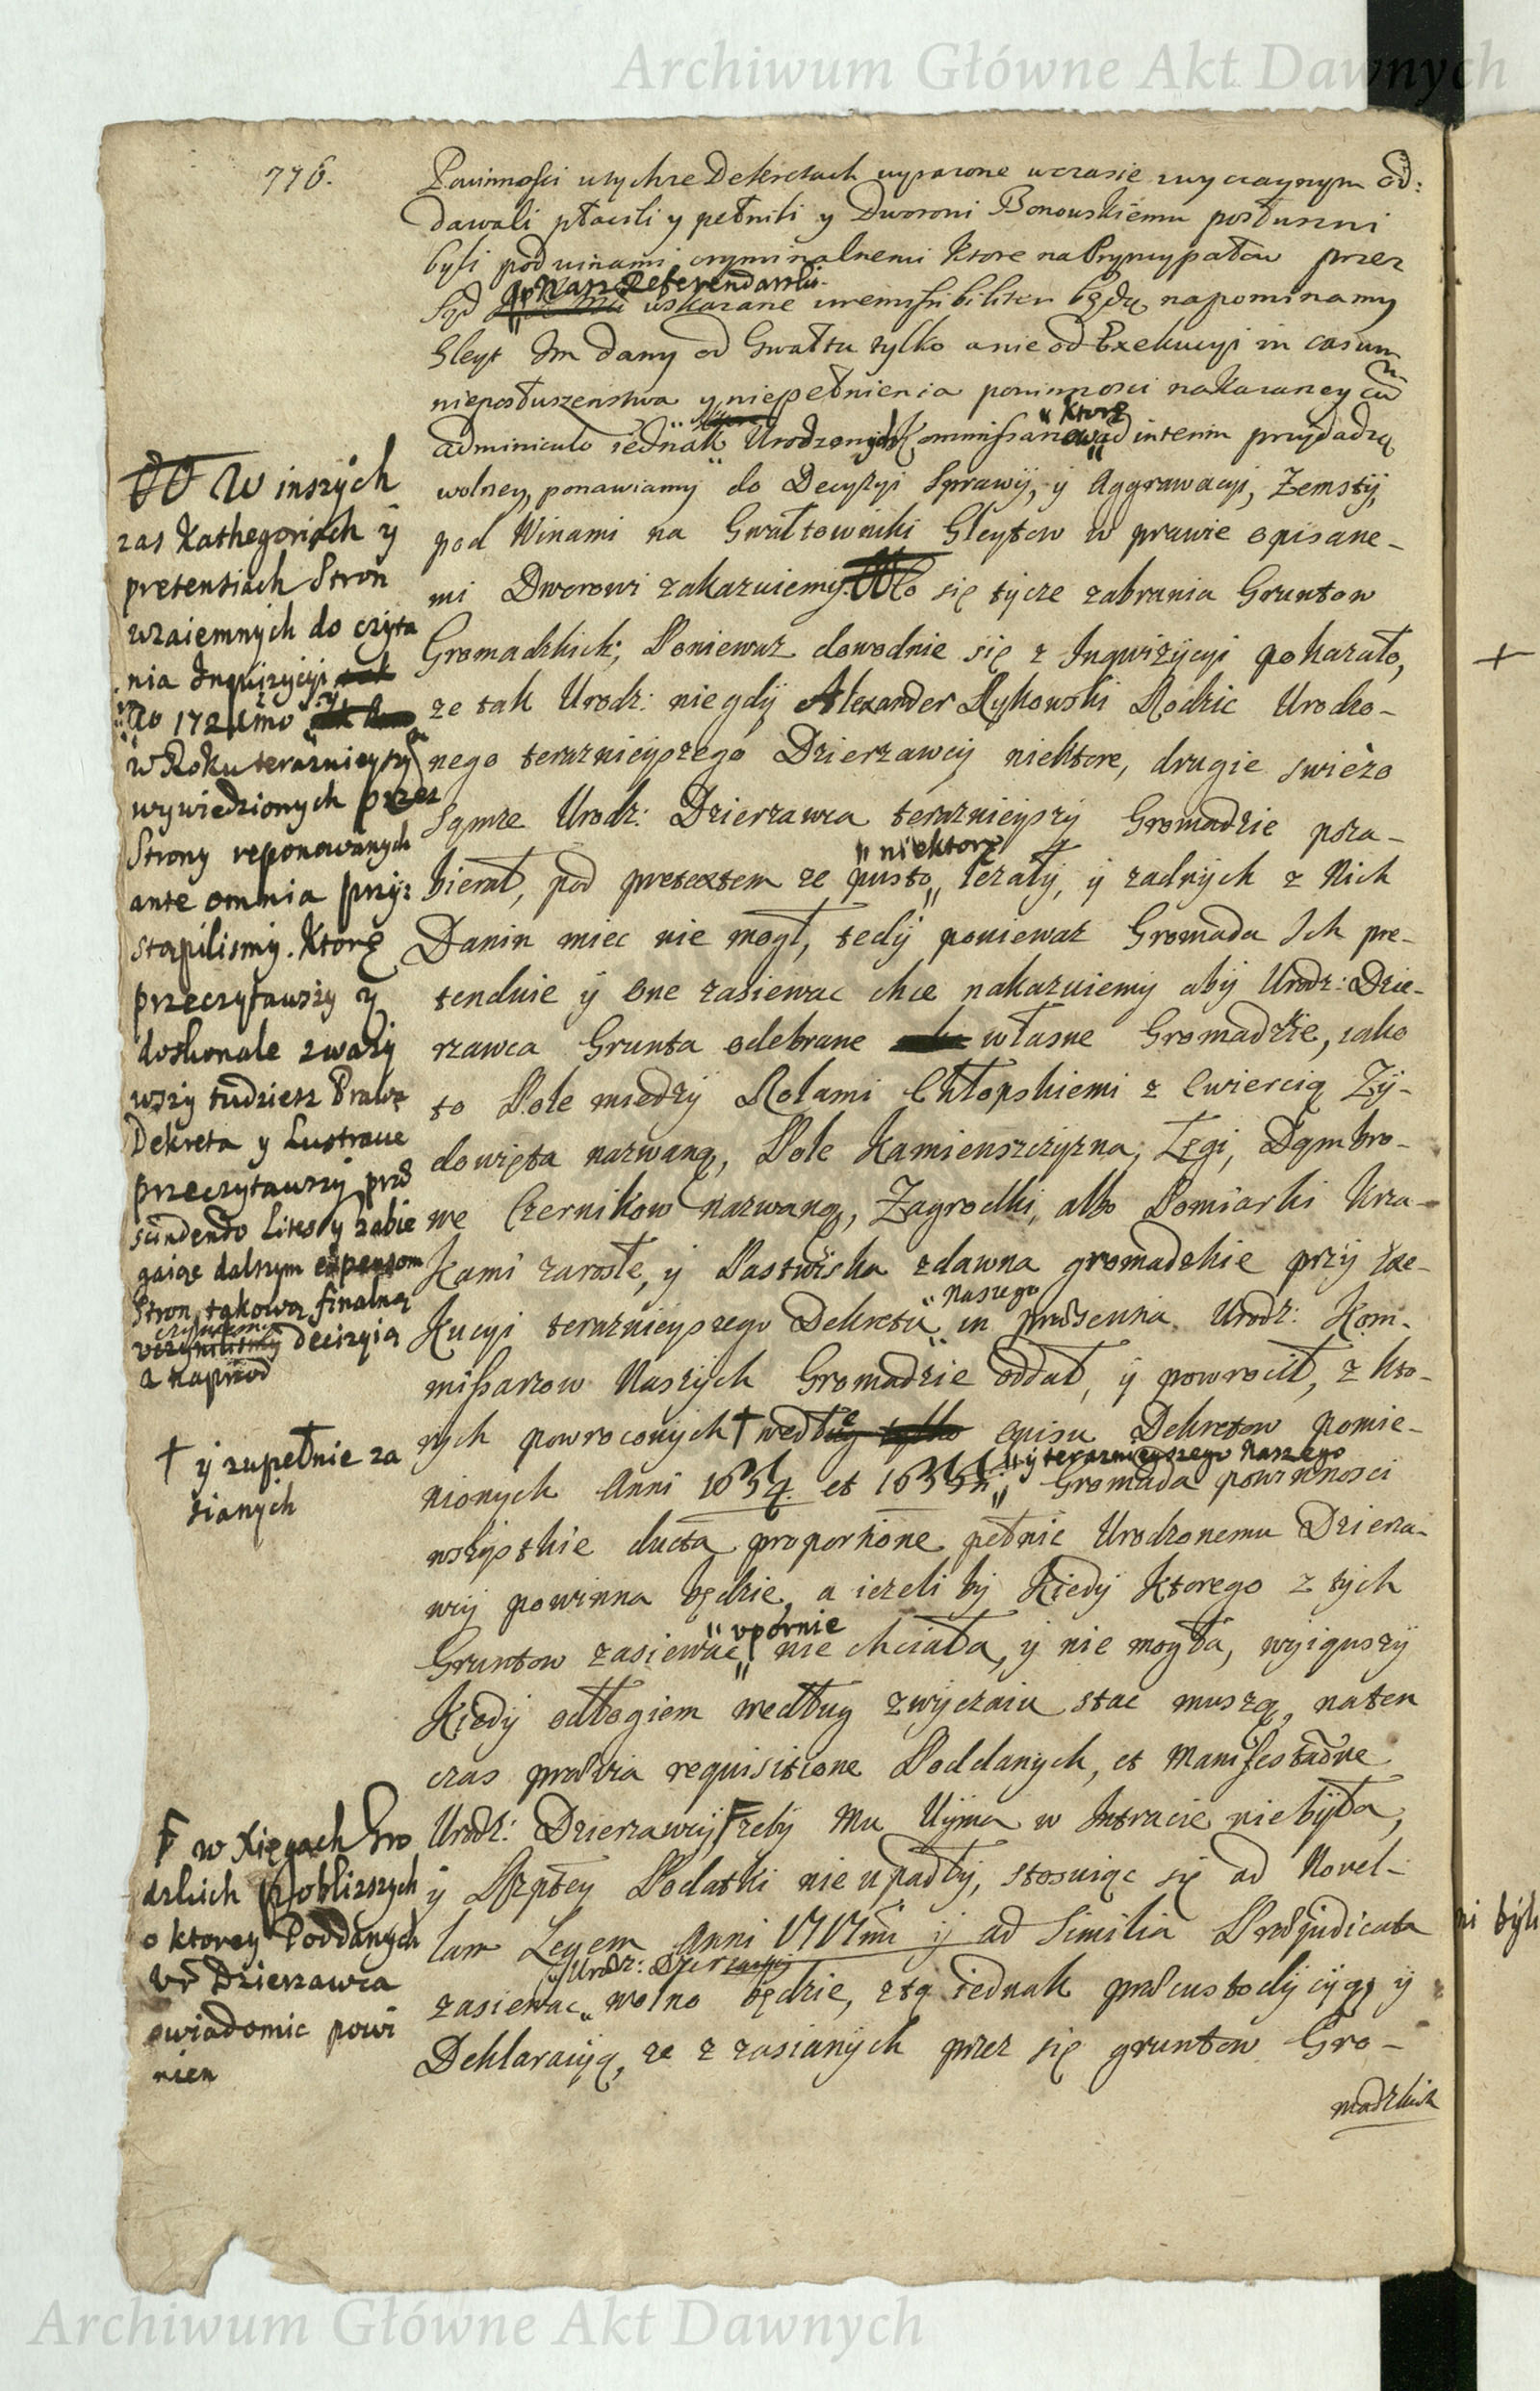 Archiwum Główne Akt Dawnych
776.
Powinności wtychze Dekretach wyrazone wczasie zwyczaynym od:
dawali płacili y pełnili y Dworowi Bonowskiemu posłuszni
byli pod winami cryminalnemi ktore na Pryncypałow przez
Sąd Nasz Referendarski wskazane irremissibiliter będą napominamy
Gleyt Im dany od Gwałtu tylko a nie od Exekucyi in casum
nieposłuszenstwa y niepełnienia powinnosci nakazaney cum
adminiculo iednak Urodzonych Kommissarzow ktorę ad interim przydadzą
wolney, ponawiamy do Decyzyi Sprawy, y Aggrawacyi, Zemsty,
pod Winami na Gwałtowniki Gleytow w prawie opisane-
mi Dworowi zakazuiemy. Co się tycze zabrania Gruntow
Gromadzkich; Poniewaz dowodnie się z Inqwizycyi pokazało,
ze tak Urodz: niegdy Alexander Rykowski Rodzic Urodzo-
nego teraznieyszego Dzierzawcy niektore, drugie swiezo
Sąmze Urodz: Dzierzawca teraznieyszy Gromadzie poza-
bierał, pod pretextem ze pusto „niektore„ lezały, y zadnych z Nich
Danin miec nie mogł, tedy poniewaz Gromada Ich pre-
tenduie y One zasiewac chce nakazuiemy aby Urodz: Dzie-
rzawca Grunta odebrane własne Gromadzkie, iako
to Pole między Rolami Chłopskiemi z Cwiercią Zy-
dowięta nazwaną, Pole Kamienszczyzna, Łęgi, Dąmbro-
we Czernikow nazwaną, Zagrodki, albo Pomiarki Krza-
kami zarosłe, y Pastwiska zdawna gromadzkie przy Exe-
kucyi teraznieyszego Dekretu „Naszego in præsentia Urodz: Kom-
missarzow Naszych Gromadzie oddał, y powrocił, z kto-
rych powroconych † według opisu Dekretow pomie-
nionych Anni 1654. et 1655ti „y teraznieyszego Naszego„ Gromada powinnosci
wszystkie ducta proportione pełnic Urodzonemu Dzierza-
wcy powinna będzie, a iezeli by kiedy ktorego z tych
Gruntow zasiewac „upornie„ nie chciała, y nie mogła, wyiąwszy
kiedy odłogiem według zwyczaiu stac muszą, naten
czas prævia requisitione Poddanych, et Manifestatione
Urodz: Dzierzawcy, F zeby Mu Uyma w Intracie niebyła,
y Rzpltey Podatki nie upadły, stosuiąc się ad Novel-
lam Legem Anni 1717mi y ad Similia Præjudicata
zasiewac „Urodz: Dzierzawcy wolno będzie, z tą iednak præcustodycyą y
Deklaracyą, ze z zasianych przez się gruntow Gro-
madzkich
W inszych
zas Kathegoriach y
pretensiach Stron
wzaiemnych do czyta
nia Inquizycyi
Ao 172
w Roku teraznieyszym
wywiedzionych przez
Strony reponowanych
ante omnia przy:
stąpilismy. Ktorę
przeczytawszy y
doskonale zwazy
wszy tudziesz Prawa
Dekreta y Lustracie
przeczytawszy præ
scindendo Lites y zabie
gaiąc dalszym expensom
Stron, takową finalną
czyniemy decizią
a naprzod
† y zupełnie za
sianych
F w Xięgach Gro
dzkich pobliszszych
o ktorey Poddanych
Ur Dzierzawca
uwiadomic powi
nien
+
ni byli
Archiwum Główne Akt Dawnych